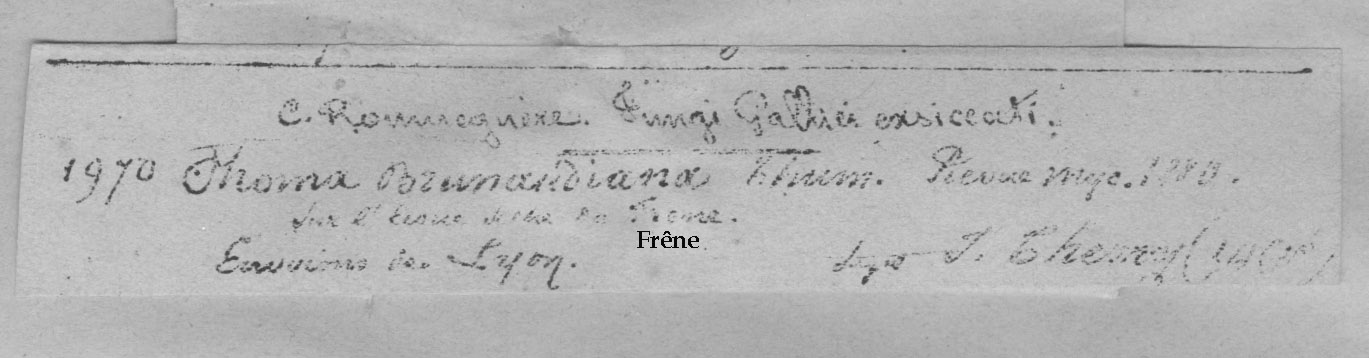 C. Roumeguère. Fungi Gallici exsiccati.
1970 Phoma Brunaudiana Thüm. Revue myc. 1880.
Sur l'écorce du Frêne.
Frêne
Environs de Lyon. Legit J. Therry